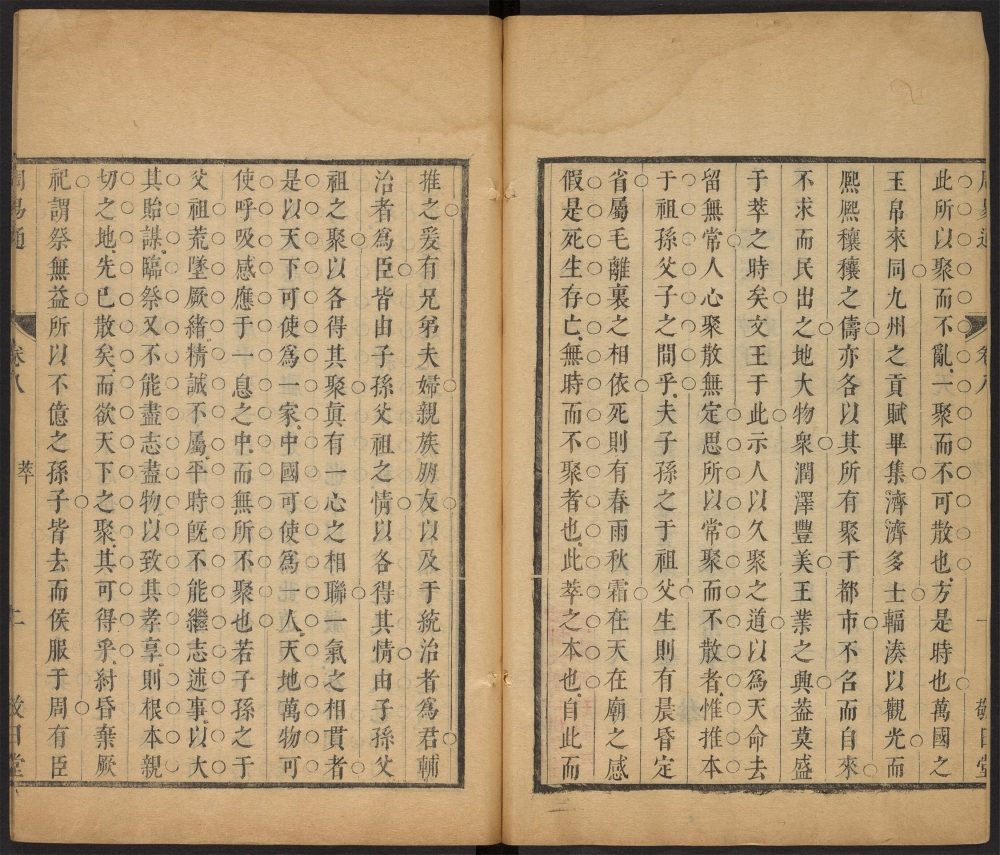 此所以聚而不亂一聚而不可散也方是時也萬國之
玉帛來同九州之貢賦畢集濟濟多士輻湊以觀光而
熈熈穰穰之儔亦各以其所有聚于都市不名而自來
不求而民出之地大物衆潤澤豐美王業之興葢莫盛
于萃之時矣文王于此示人以久聚之道以為天命去
留無常人心聚散無定思所以常聚而不散者惟推本
于祖孫父子之間乎夫子孫之于祖父生則有晨昏定
省屬毛離裏之相依死則有春雨秋霜在天在廟之感
假是死生存亡無時而不聚者也此萃之本也自此而
推之爰有兄弟夫婦親族朋友以及于統治者為君輔
治者為臣皆由子孫父祖之情以各得其情由子孫父
祖之聚以各得其聚眞有一心之相聯一氣之相貫者
是以天下可使為一家中國可使為一人天地萬物可
使呼吸感應于一息之中而無所不聚也若子孫之于
父祖荒墜厥緖精誠不屬平時旣不能繼志述事以大
其貽謀臨祭又不能盡志盡物以致其孝享則根本親
切之地先巳散矣而欲天下之聚其可得乎紂昏棄厥
祀謂祭無益所以不億之孫子皆去而侯服于周有臣
周易通
卷八
萃
敬日堂